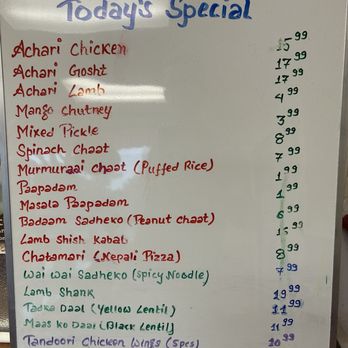 Today's Special
Achari Chicken 15 99
Achari Gosht 17 99
Achari Lamb 17 99
Mango Chutney 4 99
Mixed Pickle 3 99
Spinach Chaat 8 99
Murmuraai Chaat (Puffed Rice) 7 99
Paapadam 1 99
Masala Paapadam 99
Badaam Sadheko (Peanut chaat) 6 99
Lamb Shish Kabab 15 99
Chatamari (Nepali Pizza) 8 99
Wai Wai Sadheko (Spicy Noodle) 7 99
Lamb Shank 19 99
Tadka Daal (Yellow Lentil) 11 99
Maas ko Daal (Black Lentil) 11 99
Tandoori Chicken Wings (5pcs) 10 99